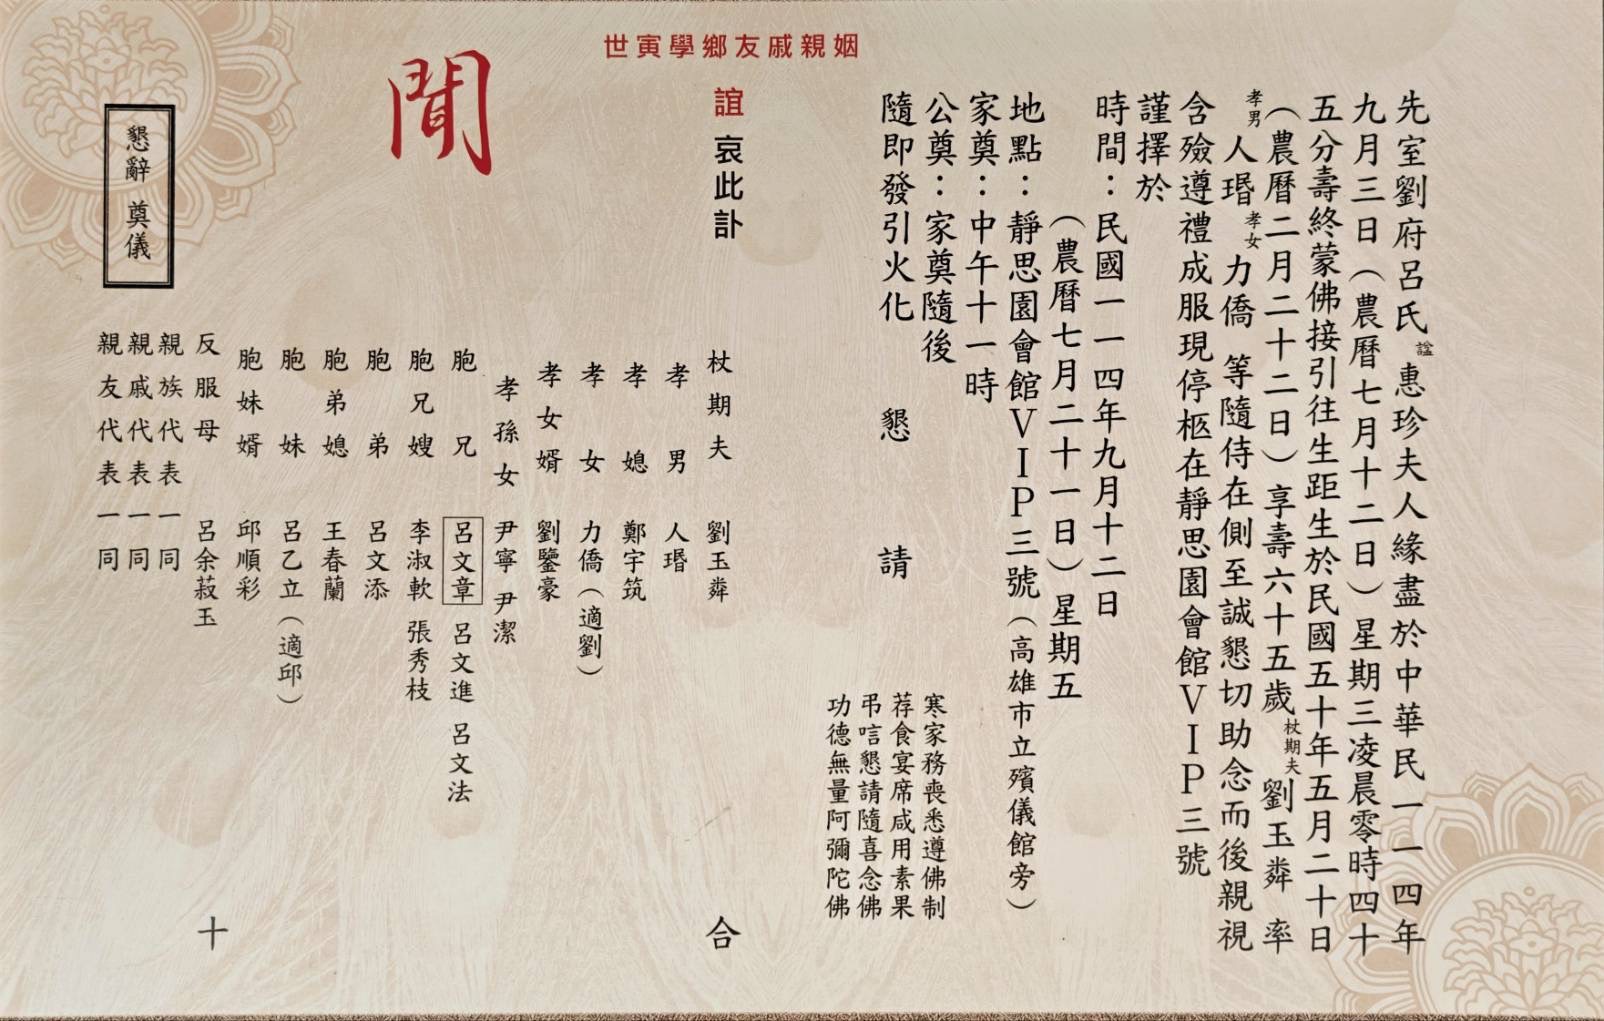 先室劉府呂氏諡惠珍夫人緣盡於中華民國一一四年
九月三日（農曆七月十二日）星期三凌晨零時四十
五分壽終蒙佛接引往生距生於民國五十年五月二十日
（農曆二月二十二日）享壽六十五歲杖期夫劉玉粦 率
孝男人瑉孝女力僑 等隨侍在側至誠懇切助念而後親視
含殮遵禮成服現停柩在靜思園會館VIP三號
謹擇於
時間：民國一一四年九月十二日
（農曆七月二十一日）星期五
地點：靜思園會館VIP三號（高雄市立殯儀館旁）
家奠：中午十一時
公奠：家奠隨後
隨即發引火化
懇請
寒家務喪悉遵佛制
荐食宴席咸用素果
弔唁懇請隨喜念佛
功德無量阿彌陀佛
世寅學鄉友戚親姻
誼 哀此訃
聞
杖期夫 劉玉粦
孝男 人瑉
孝媳 鄭宇筑
孝女 力僑（適劉）
孝女婿 劉鑒豪
孝孫女 尹寧 尹潔
胞兄 呂文章 呂文進 呂文法
胞兄嫂 李淑軟 張秀枝
胞弟 呂文添
胞弟媳 王春蘭
胞妹 呂乙立（適邱）
胞妹婿 邱順彩
反服母 呂余菽玉
親族代表一同
親戚代表一同
親友代表一同
合十
懇辭 奠儀